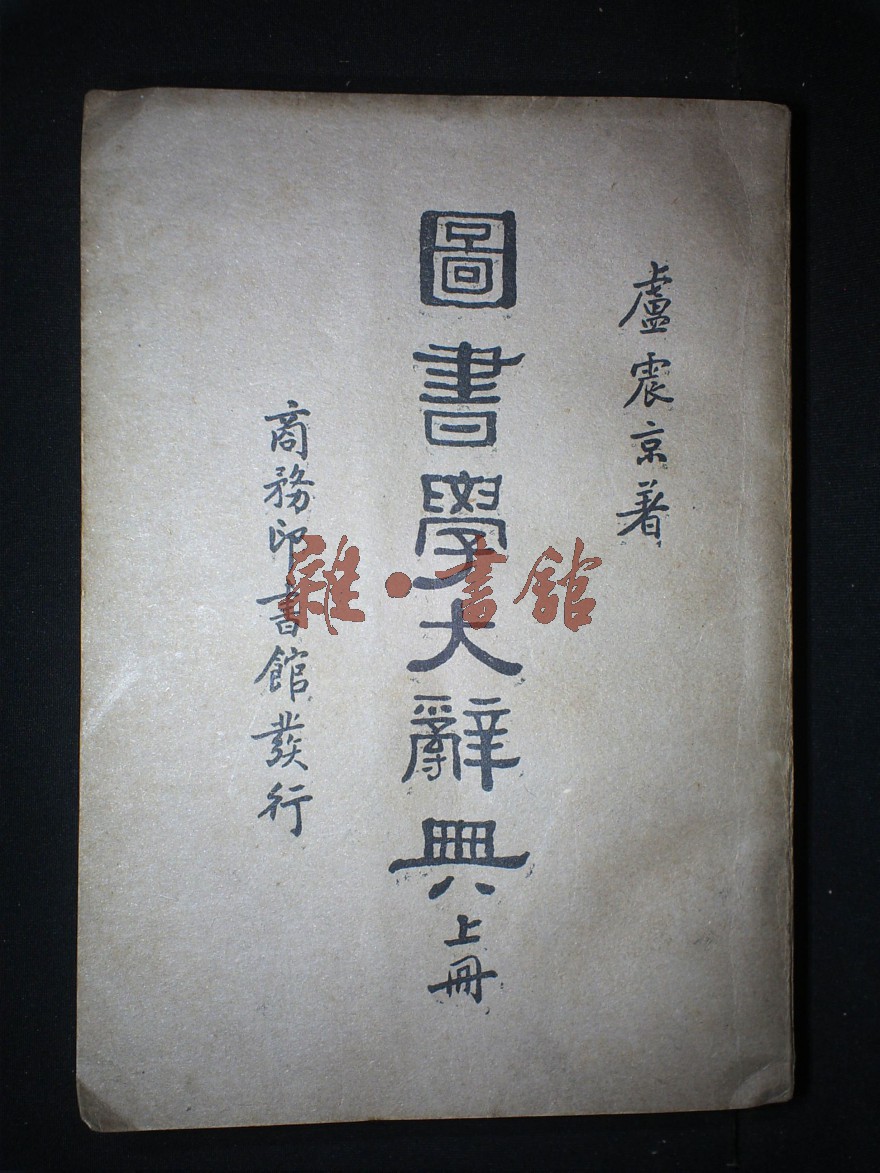 盧震京著
圖書學大辭典上册
商務印書館發行
雜·書館